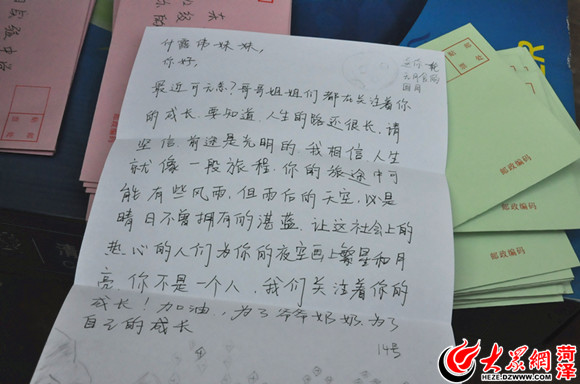 妹妹，
你好，
最近可无恙？哥哥姐姐们都在关注着你
的成长，要知道，人生的路还很长，请
坚信，前途是光明的，我相信，人生
就像一段旅程，你的旅途中可
能有些风雨，但雨后的天空，必是
晴日不曾拥有的湛蓝，让这社会上的
热心的人们为你的夜空画上繁星和月
亮，你不是一个人，我们关注着你的
成长！加油，为了爷爷奶奶，为了
自己的成长
14号
邮政编码
邮政编码
邮政编码
大众网 菏泽
HEZE.DZWWW.COM